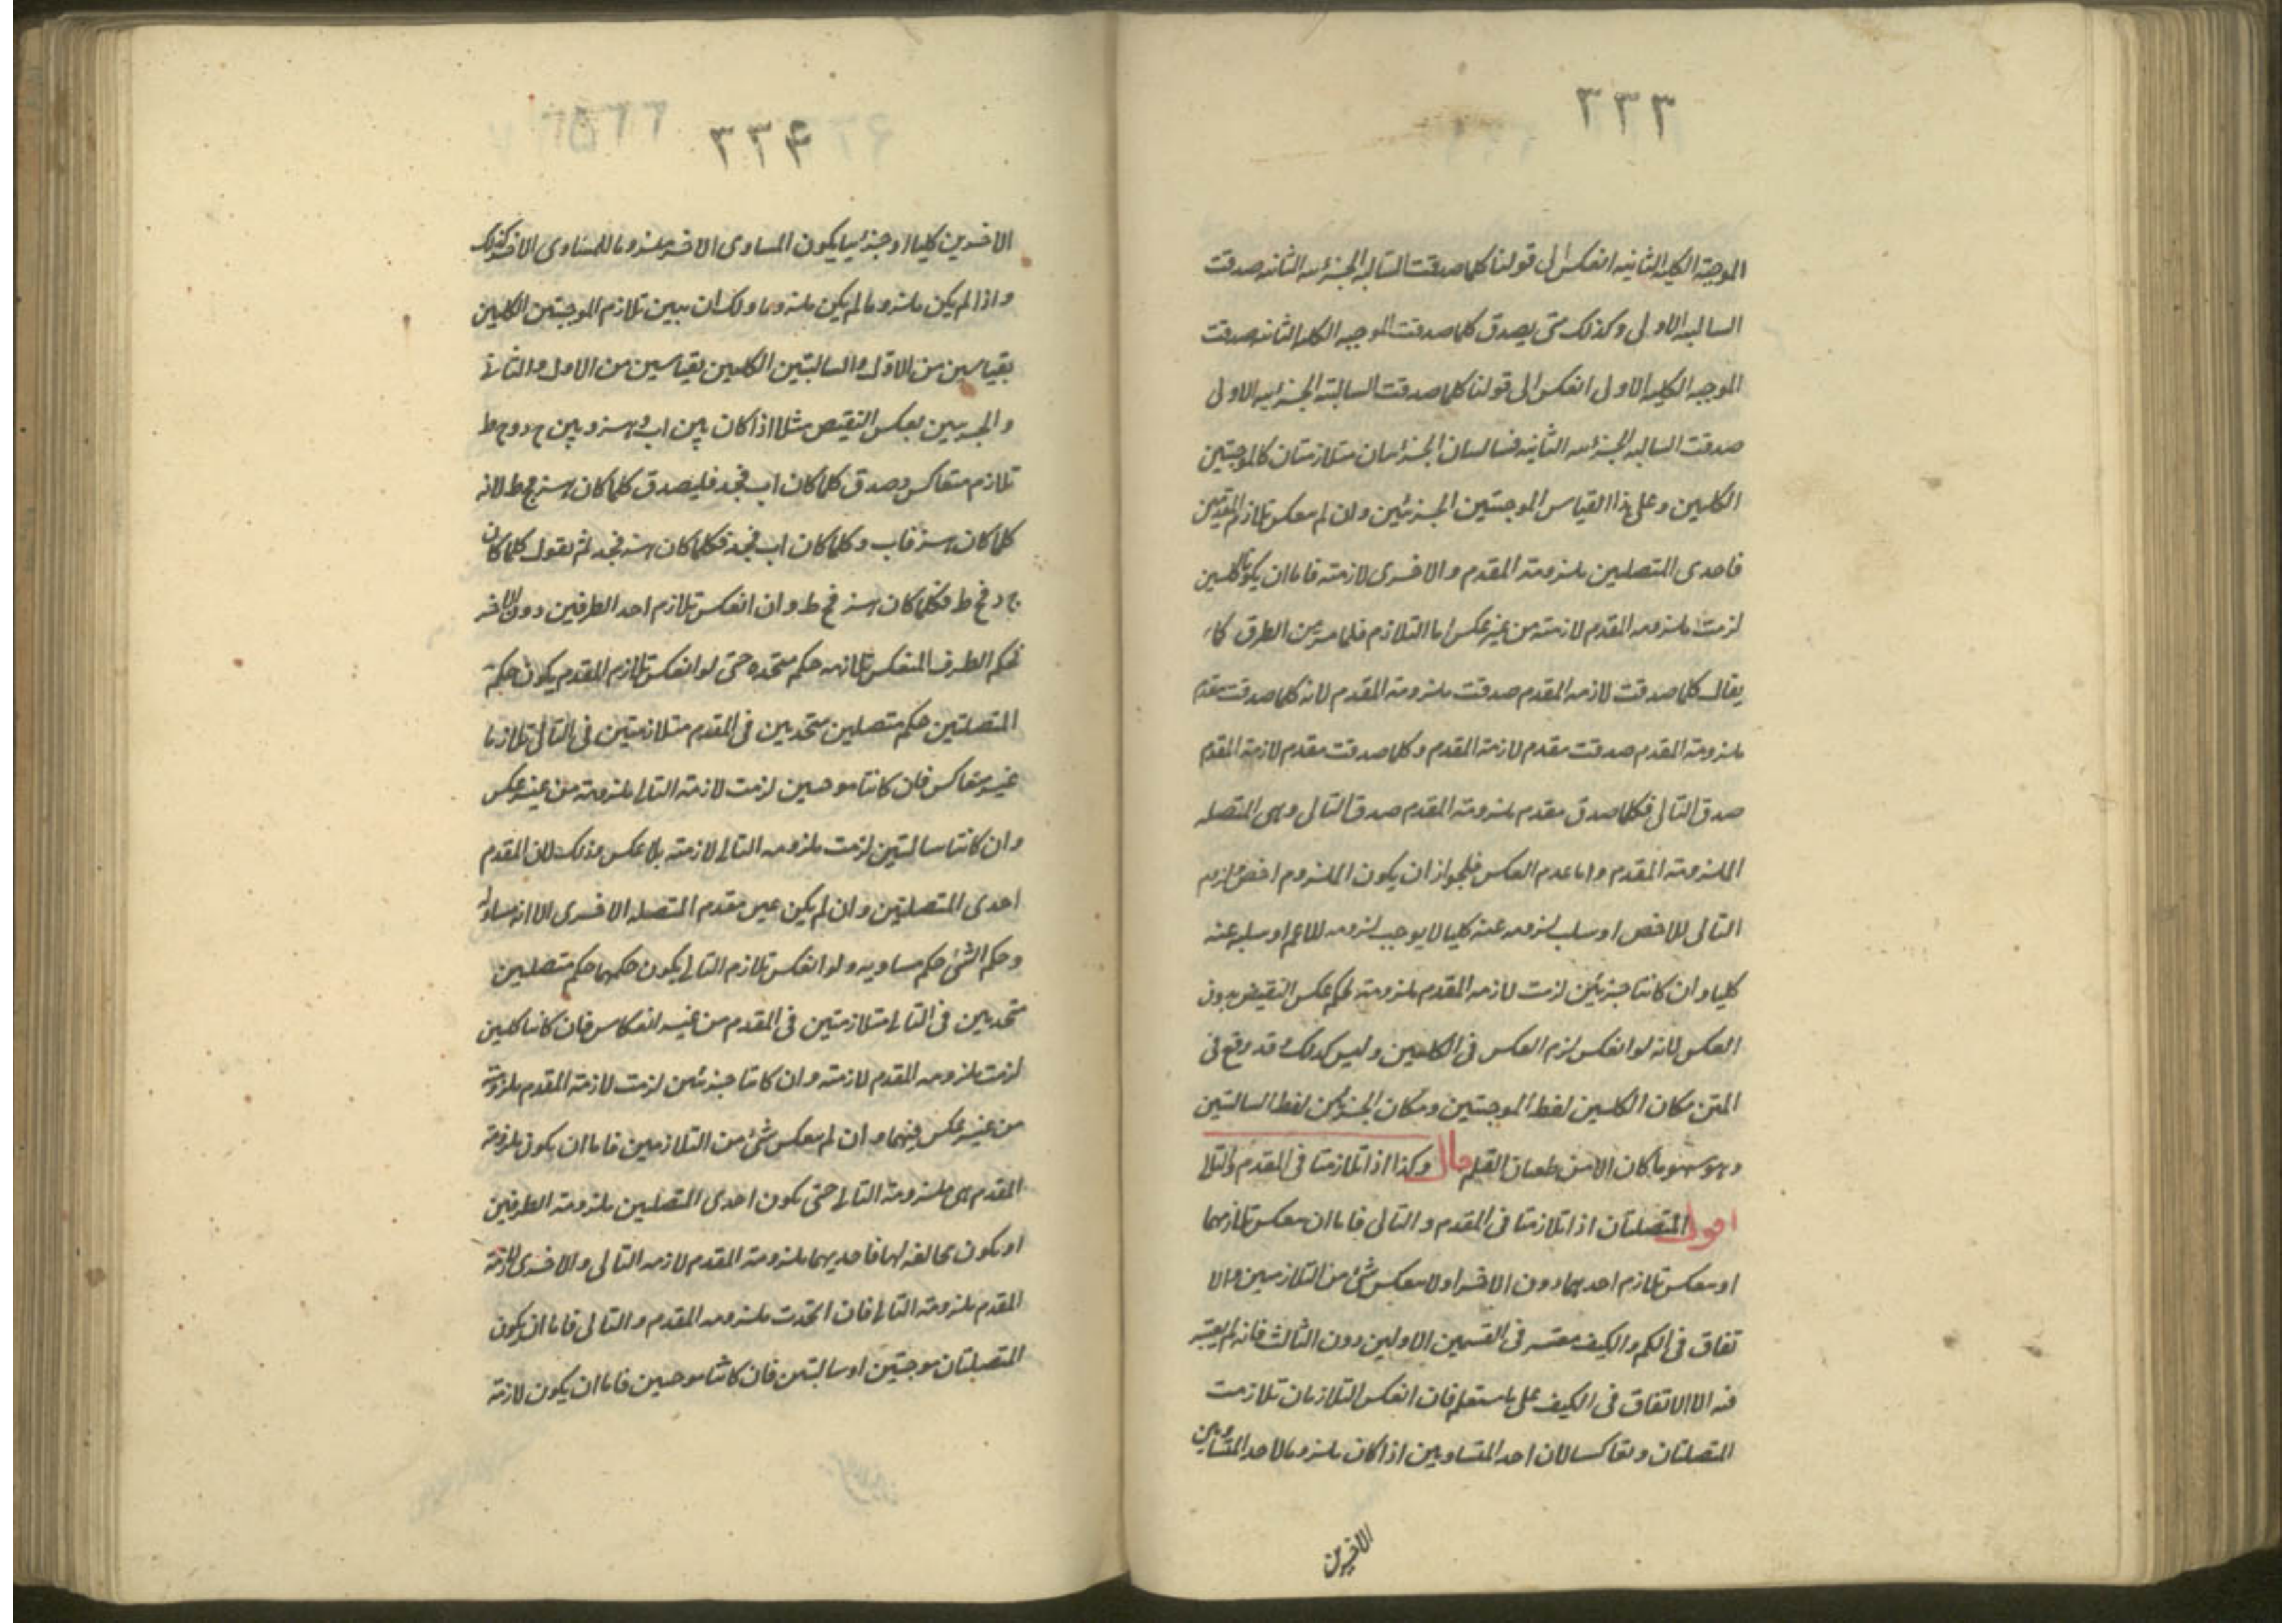 ٣٣٣
الموجبة الكلية الثانية انعكس الى قولنا كلما صدقت السالبة الجزئية الثانية صدقت
السالبة الاولى وكذلك متى يصدق كلما صدقت الموجبه الكلية الثانية صدقت
الموجبه الكلية الاولى انعكس الى قولنا كلما صدقت السالبة الجزئيه الاولى
صدقت السالبه الجزئيه الثانيه فالسالبتان الجزئيتان متلازمتان كالموجبتين
الكليتين وعلى هذا القياس الموجبتين الجزئيتين وان لم ينعكس تلازم المقدمين
فاحدى المتصلتين ملزومة المقدم والاخرى لازمته فاما ان يكونا كليتين
لزمت ملزومه المقدم لازمته من غير عكس اما التلازم فلما مر من الطرق كما
يقال كلما صدقت لازمه المقدم صدقت ملزومة المقدم لانه كلما صدقت مقدم
ملزومة المقدم صدقت مقدم لازمة المقدم وكلما صدقت مقدم لازمة المقدم
صدق التالى فكلما صدق مقدم ملزومة المقدم صدق التالى وهى المتصله
الملزومة المقدم واما عدم العكس فلجواز ان يكون الملزوم اخص ولزوم
التالى للاخص او سلب لزومه عنه كليا لا يوجب لزومه للاعم او سلبه عنه
كليا وان كانتا جزئيتين لزمت لازمه المقدم ملزومته بحكم عكس النقيض بدون
العكس لانه لو انعكس لزم العكس فى الكليتين وليس كذلك وقد وقع فى
المتن مكان الكليتين لفظ الموجبتين ومكان الجزئيتين لفظ السالبتين
وهو سهو ما كان الا من طغيان القلم قال وكذا اذا تلازمتا فى المقدم والتالى
اقول المتصلتان اذا تلازمتا فى المقدم والتالى فاما ان ينعكس تلازمهما
او ينعكس تلازم احديهما دون الاخر او لا ينعكس شئ من التلازمين والا
تفاق فى الكم والكيف معتبر فى القسمين الاولين دون الثالث فانه لم يعتبر
فيه الا الاتفاق فى الكيف على ما ستعلم فان انعكس التلازمان تلازمت
المتصلتان وتعاكستا لان احد المتساويين اذا كان ملزوما لاحد المتساويين
الاخرين
٣٣٤
الاخرين كليا او جزئيا يكون المساوى الاخر ملزوما للمساوى الاخر كذلك
واذا لم يكن ملزوما لم يكن ملزوما ولك ان تبين تلازم الموجبتين الكليتين
بقياسين من الاول والسالبتين الكليتين بقياسين من الاول والثانى
والجزئيتين بعكس النقيض مثلا اذا كان بين اب و هز وبين ج د وح ط
تلازم متعاكس وصدق كلما كان اب فجد فليصدق كلما كان هز فح ط لانه
كلما كان هز فاب وكلما كان اب فجد فكلما كان هز فجد ثم نقول كلما كان
ج د فح ط فكلما كان هز فح ط وان انعكس تلازم احد الطرفين دون الاخر
فحكم الطرف المنعكس تلازمه حكم متحده حتى لو انعكس تلازم المقدم يكون حكم
المتصلتين حكم متصلتين متحدتين فى المقدم متلازمتين فى التالى تلازما
غير متعاكس فان كانتا موجبتين لزمت لازمة التالى ملزومته من غير عكس
وان كانتا سالبتين لزمت ملزومه التالى لازمته بلا عكس وذلك لان المقدم
احدى المتصلتين وان لم يكن عين مقدم المتصله الاخرى الا انه مساو له
وحكم الشئ حكم مساويه ولو انعكس تلازم التالى يكون حكمهما حكم متصلتين
متحدتين فى التالى متلازمتين فى المقدم من غير انعكاس فان كانتا كليتين
لزمت ملزومه المقدم لازمته وان كانتا جزئيتين لزمت لازمة المقدم ملزومته
من غير عكس فيهما وان لم ينعكس شئ من التلازمين فاما ان يكون ملزومة
المقدم هى ملزومة التالى حتى يكون احدى المتصلتين ملزومة الطرفين
او يكون مخالفة لها فاحديهما ملزومة المقدم لازمه التالى والاخرى لازمة
المقدم ملزومة التالى فان اتحدت ملزومه المقدم والتالى فاما ان يكون
المتصلتان موجبتين او سالبتين فان كانتا موجبتين فاما ان يكون لازمة